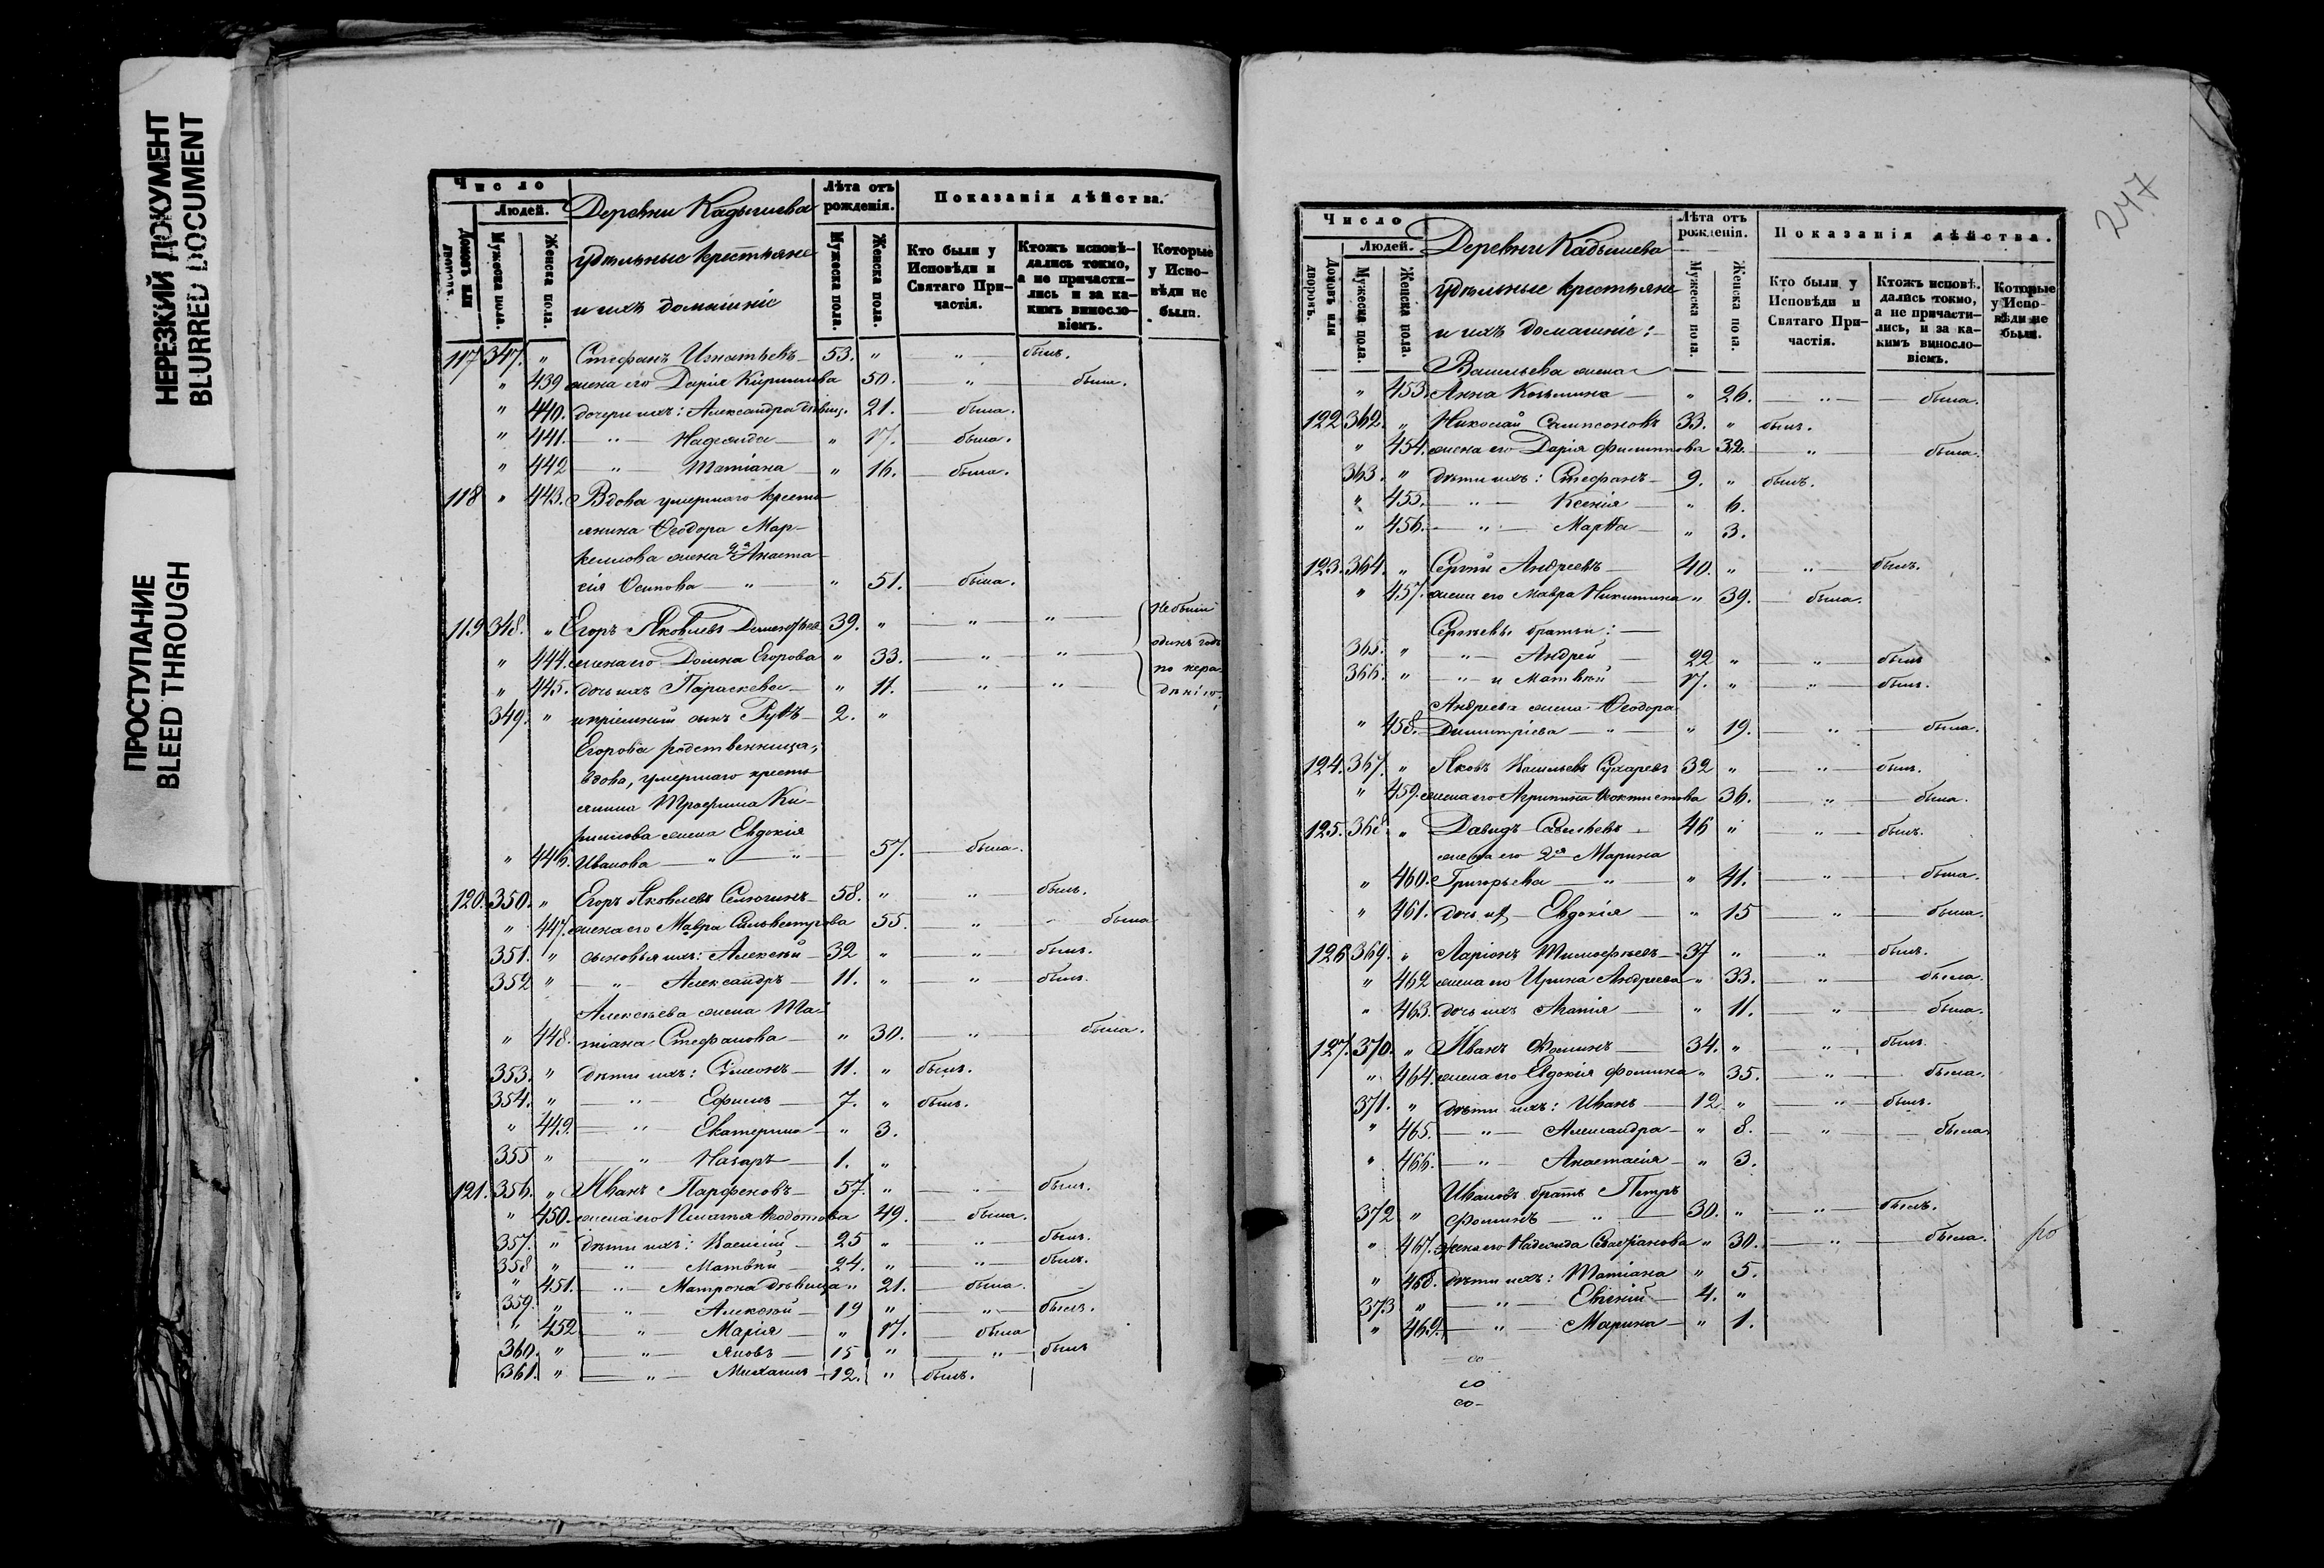 НЕРЕЗКИЙ ДОКУМЕНТ
BLURRED DOCUMENT
ПРОСТУПАНИЕ
BLEED THROUGH
Число
Людей.
Домовъ или дворовъ.
Мужеска пола.
Женска пола.
Деревни Кадышева
удѣльные крестьяне
и ихъ домашніе
Лѣта отъ рожденія.
Мужеска пола.
Женска пола.
Показанія дѣйства.
Кто были у Исповѣди и Святаго Причастія.
Ктожъ исповѣдались токмо, а не причастились и за какимъ винословіемъ.
Которые у Исповѣди не были.
117 347. " Стефанъ Игнатьевъ 53. " " былъ.
" 439 жена его Дарія Кириллова 50. " была.
" 440. дочери ихъ: Александра дѣвиц. 21. была.
" 441. " Надежда " 17. была.
" 442 " Татіана " 16. была.
118 " 443. Вдова умершаго кресть-
янина Ѳеодора Мар-
келлова жена Анаста-
сія Осипова " " 51. была.
119 348. " Егоръ Яковлевъ 39. " " " не были
" 444. жена его Домна Егорова " 33. " " одинъ годъ
" 445. дочь ихъ Параскева " 11. " " по нера-
349. " и пріемный сынъ 2. " дѣнію.
Егорова родственница,
вдова, умершаго кресть-
янина Трофима Ки-
риллова жена Евдокія
" 446. Иванова " " 57. была.
120. 350. " Егоръ Яковлевъ 58. " " былъ.
" 447. жена его Мавра Сильвестрова 55. " была
351. " сыновья ихъ: Алексѣй 32 " " былъ.
352 " " Александръ 11. " " былъ.
Алексѣева жена Та-
" 448. тіана Стефанова " 30. " была.
353. " дѣти ихъ: Симеонъ 11. " былъ.
354. " " Ефимъ 7. " былъ.
" 449. " Екатерина " 3.
355 " " Назаръ 1. "
121. 356. " Иванъ Парфеновъ 57. " " былъ.
" 450. жена его Пелагея Ѳедотова 49. была.
357. " дѣти ихъ: Василій 25 " " былъ.
358 " " Матвѣй 24. " " былъ.
" 451. " Матрона дѣвица " 21. была.
359. " " Алексѣй 19 " " былъ.
" 452 " Марія " 17. была
360. " " Яковъ 15 " " былъ
361. " " Михаилъ 12. " былъ.
247
Число
Людей.
Домовъ или дворовъ.
Мужеска пола.
Женска пола.
Деревни Кадышева
удѣльные крестьяне
и ихъ домашніе:
Лѣта отъ рожденія.
Мужеска пола.
Женска пола.
Показанія дѣйства.
Кто были у Исповѣди и Святаго Причастія.
Ктожъ исповѣдались токмо, а не причастились, и за какимъ винословіемъ.
Которые у Исповѣди не были.
Васильева жена
" 453. Анна Козьмина " 26. " была.
122 362. " Николай Сампсоновъ 33. " былъ.
" 454. жена его Дарія Филиппова 32. " была.
363. " дѣти ихъ: Стефанъ 9. " былъ.
" 455. " Ксенія " 6.
" 456. " Марѳа " 3.
123. 364. " Сергѣй Андреевъ 40. " " былъ.
" 457. жена его Мавра Никитина " 39. была.
Сергѣевы братья:
365. " " Андрей 22 " " былъ
366. " " и Матвѣй 17. " " былъ.
Андреева жена Ѳеодора
" 458. Димитріева " " 19. " была.
124. 367. " Яковъ Васильевъ Сухаревъ 32 " " былъ.
" 459. жена его Агрипина Ѳеоктистова 36. " была.
125. 368 " Давидъ Савельевъ 46 " " былъ.
жена его 2я Марина
" 460. Григорьева " " 41. " была.
" 461. дочь их Евдокія " 15 " была.
126 369. " Ларіонъ Тимофѣевъ 37 " " былъ.
" 462 жена его Ирина Андреева " 33. " была.
" 463. дочь ихъ Агапія " 11. " была.
127. 370. " Иванъ Фоминъ 34. " " былъ.
" 464. жена его Евдокія Фомина " 35. " была.
371. " дѣти ихъ: Иванъ 12 " " былъ.
" 465. " Александра " 8. " была.
" 466. " Анастасія " 3.
Ивановъ братъ Петръ
372 " Фоминъ " 30. " " былъ.
" 467. жена его Надежда " 30. " была.
" 468. дѣти ихъ: Татіана " 5.
373 " " Евгеній 4. "
" 469. " Марина " 1.